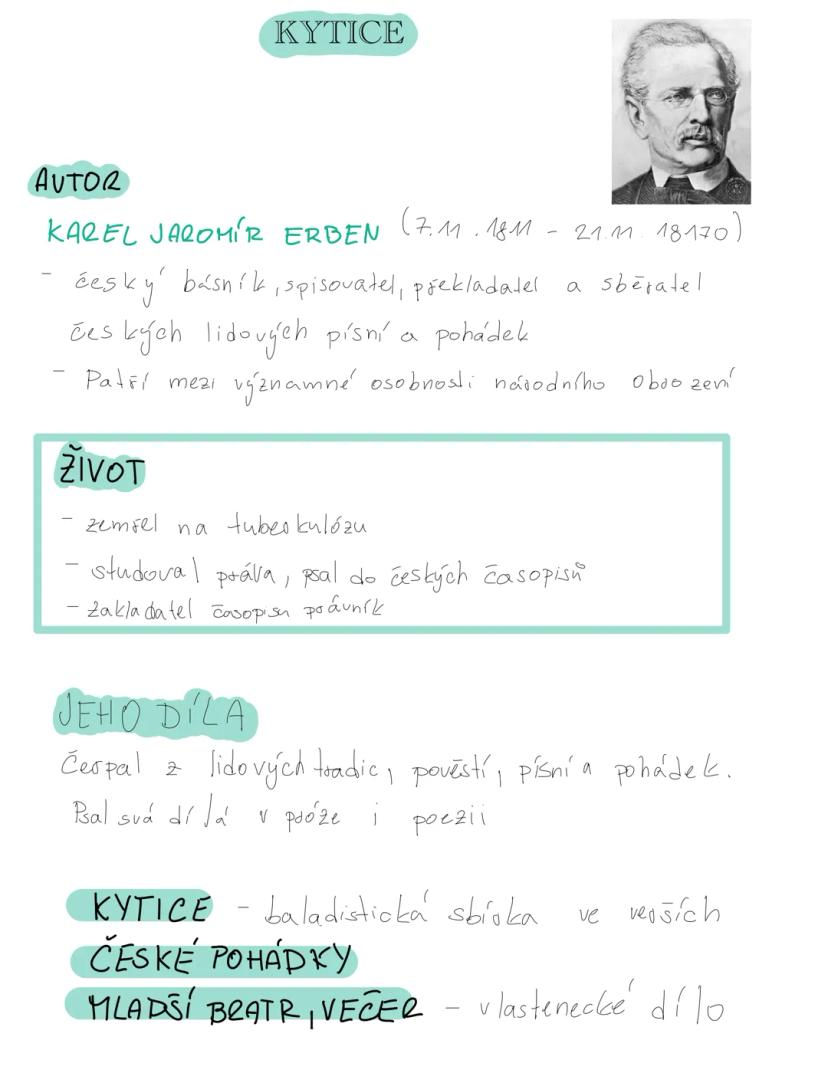 KYTICE
AUTOR
KAREL JAROMÍR ERBEN (7.11.1811 - 21.11.18170)
- český básník, spisovatel, překladatel a sběratel
českých lidových písní a pohádek
- Patří mezi významné osobnosti národního obrození
ŽIVOT
- zemřel na tuberkulózu
- studoval práva, psal do českých časopisů
- zakladatel časopisu právník
JEHO DÍLA
Čerpal z lidových tradic, pověstí, písní a pohádek.
Psal svá dílá v próze i poezii
KYTICE - baladistická sbírka ve verších
ČESKÉ POHÁDKY
MLADŠÍ BRATR, VEČER - vlastenecké dílo